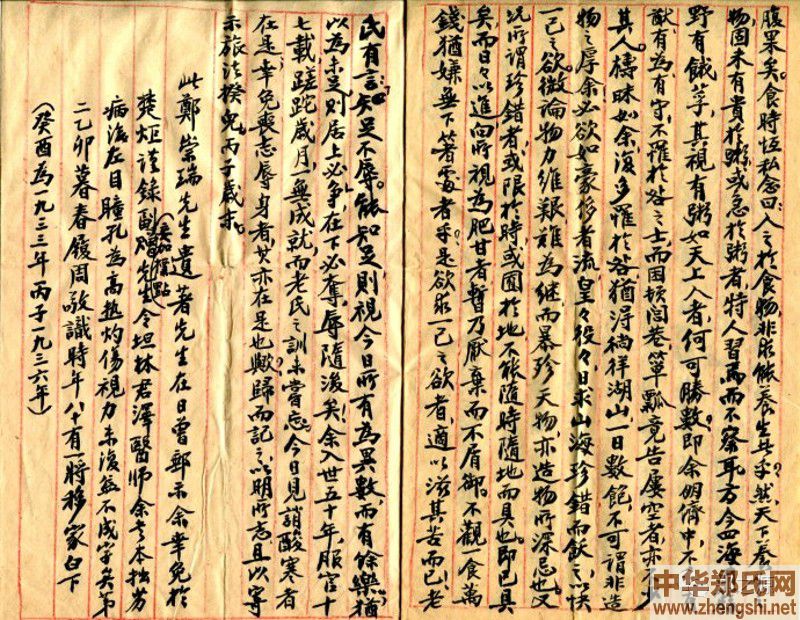 腹果矣食時恒私念曰人之於食物非求能養生
物固未有貴於粥或急於粥者特人習焉而不察耳方今四海
野有餓莩其視有粥如天上人者何可勝數即余朋儕中不
猷有為有守不罹於咎之士而困頓閭巷簞瓢竟告屢空者亦
其人檮昧如余復多罹於咎猶得徜徉湖山一日數飽不可謂非造
物之厚余必欲如豪侈者流皇々役々日求山海珍錯而飫之以快
一己之欲微論物力維艱難為継而暴殄天物亦造物所深忌也又
况所謂珍錯者或限於時或囿於地不能隨時隨地而具也即已具
矣而日々以進向所視為肥甘者暫乃厭棄而不屑御不觀一食萬
錢猶嫌無下箸處者乎是欲求一己之欲者適以滋其苦而已老
氏有言知足不辱能知足則視今日所有為異數而有餘樂猶
以為未足則居上必争在下必奪辱隨後矣余入世五十年服官十
七載蹉跎歲月一無成就而老氏之訓未嘗忘今日見誚酸寒者
在是幸免喪志辱身者其亦在是也歟歸而記之以明所志且以寄
示旅法揆兒丙子歲末
此鄭崇瑞先生遺著先生在日曾郵示余幸免於
楚炬謹錄副
先生令坦林君澤醫師余書本拙劣
病後左目瞳孔為高熱灼傷視力未復益不成字矣第
二乙卯暮春履周敬識時年八十有一將移家白下
(癸酉為一九三三年 丙子一九三六年)
中华郑氏网
www.zhengshi.net